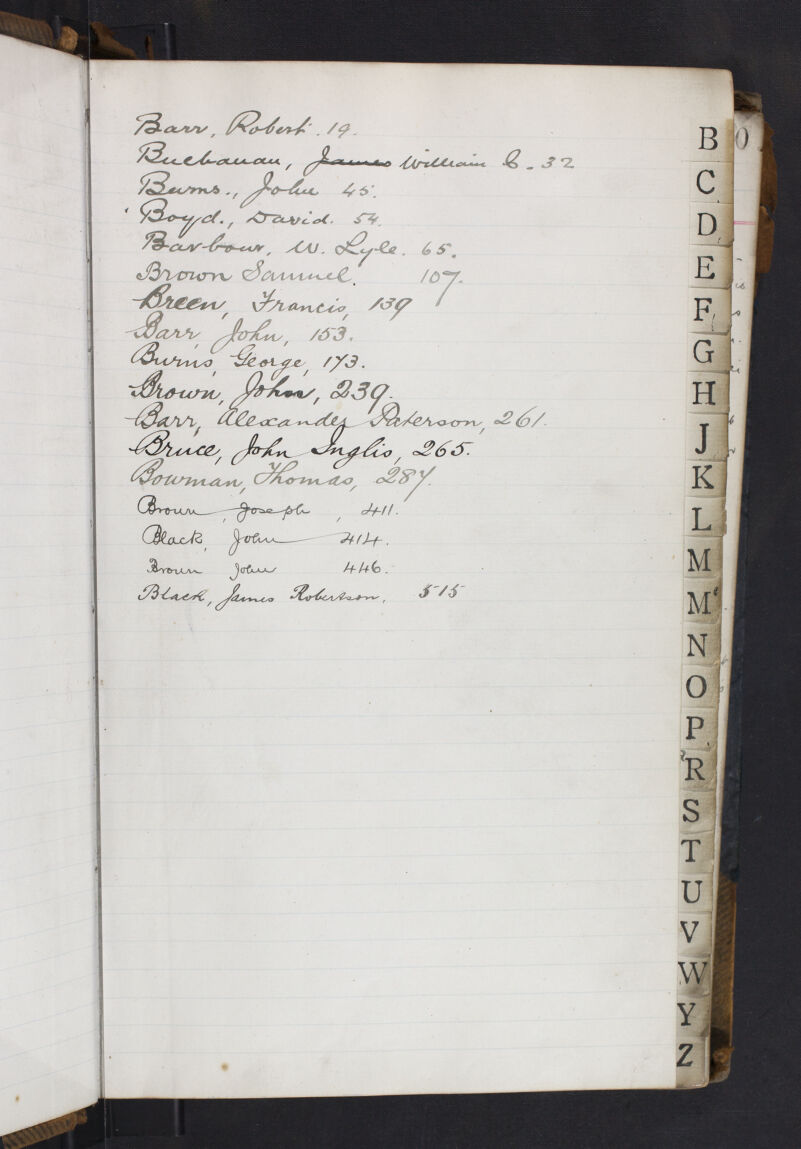 Barr, Robert. 19.
Buchanan, James William C. 32
Burns., John 45.
Boyd., David. 54.
Barbour, W. Lyle. 65.
Brown Samuel. 107.
Breen, Francis, 139
Barr, John, 153.
Burns, George, 173.
Brown, John, 239.
Barr, Alexander Paterson, 261.
Bruce, John Inglis, 265.
Bowman, Thomas, 287.
Brown, Joseph, 411.
Black, John 414.
Brown John 446.
Black, James Robertson, 515
B
C
D
E
F
G
H
J
K
L
M
Mc
N
O
P
R
S
T
U
V
W
Y
Z